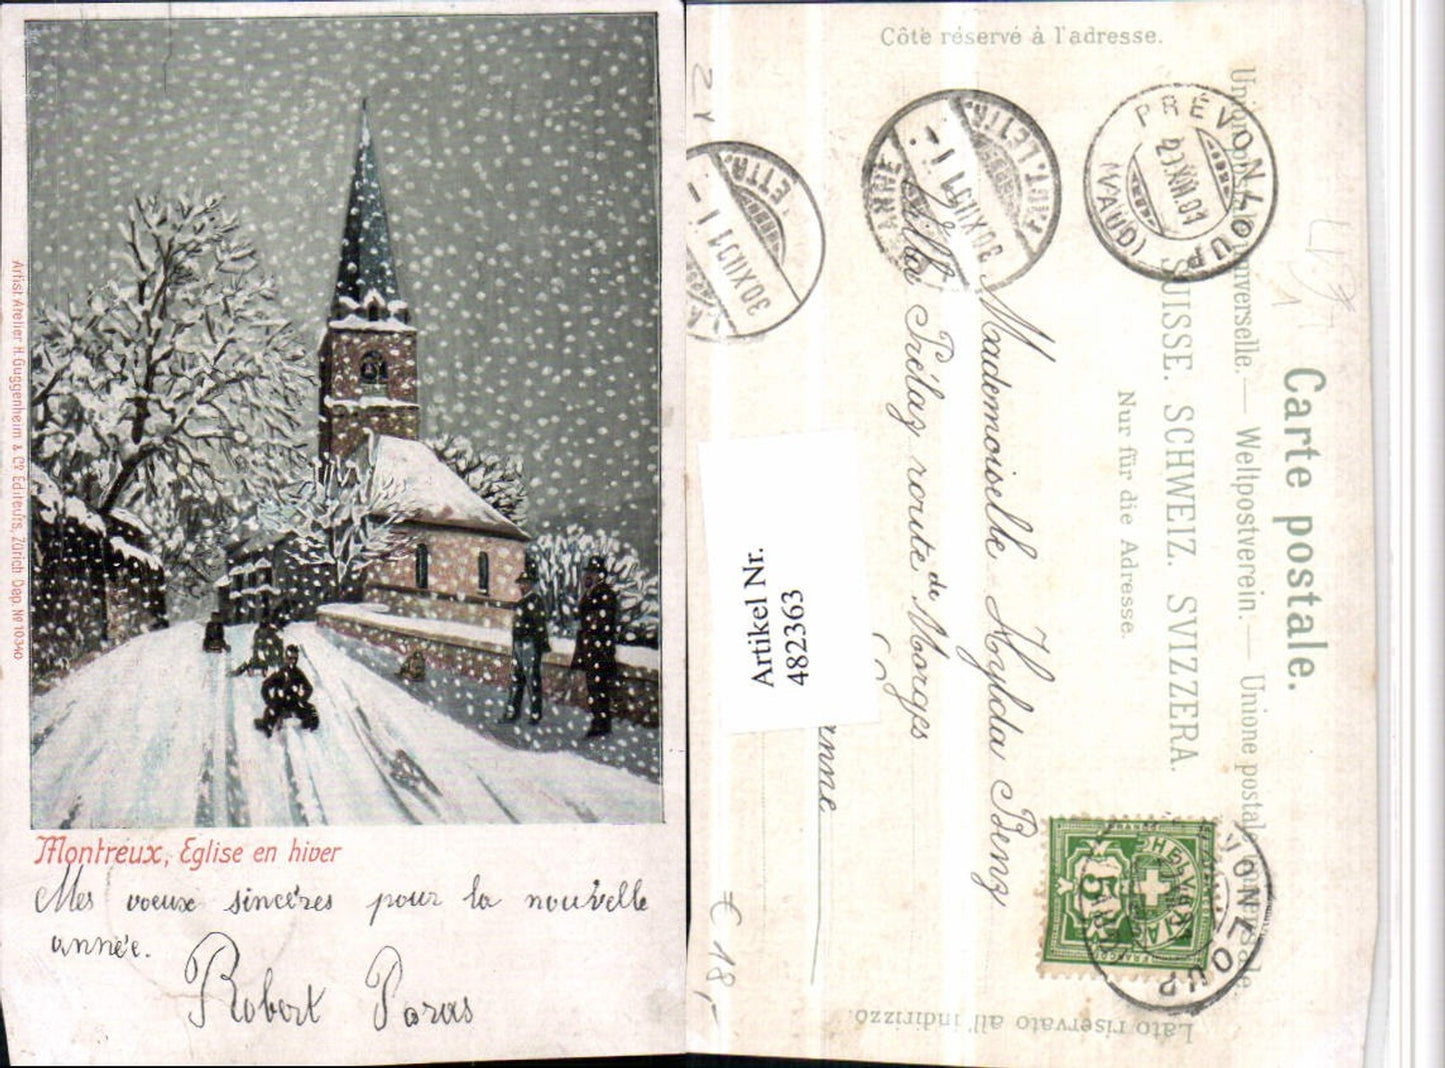 Artist. Atelier H. Guggenheim & Co. Editeurs, Zürich Dep. No 10340
Montreux, Eglise en hiver
Mes voeux sincères pour la nouvelle
année.
Robert
Côté réservé à l'adresse.
Carte postale.
Weltpostverein. — Unione postale
SUISSE. SCHWEIZ. SVIZZERA.
Nur für die Adresse.
Lato riservato all' indirizzo.
PRÉVONLOUP
(VAUD)
30.XII.01
LETTR.
30.XII.01
LETTR.
Mademoiselle Hylda Benz
Villa Prélaz route de Morges
anne.
Artikel Nr.
482363
HELVETIA
5
FRANCO
VONLOUP
€ 18,-